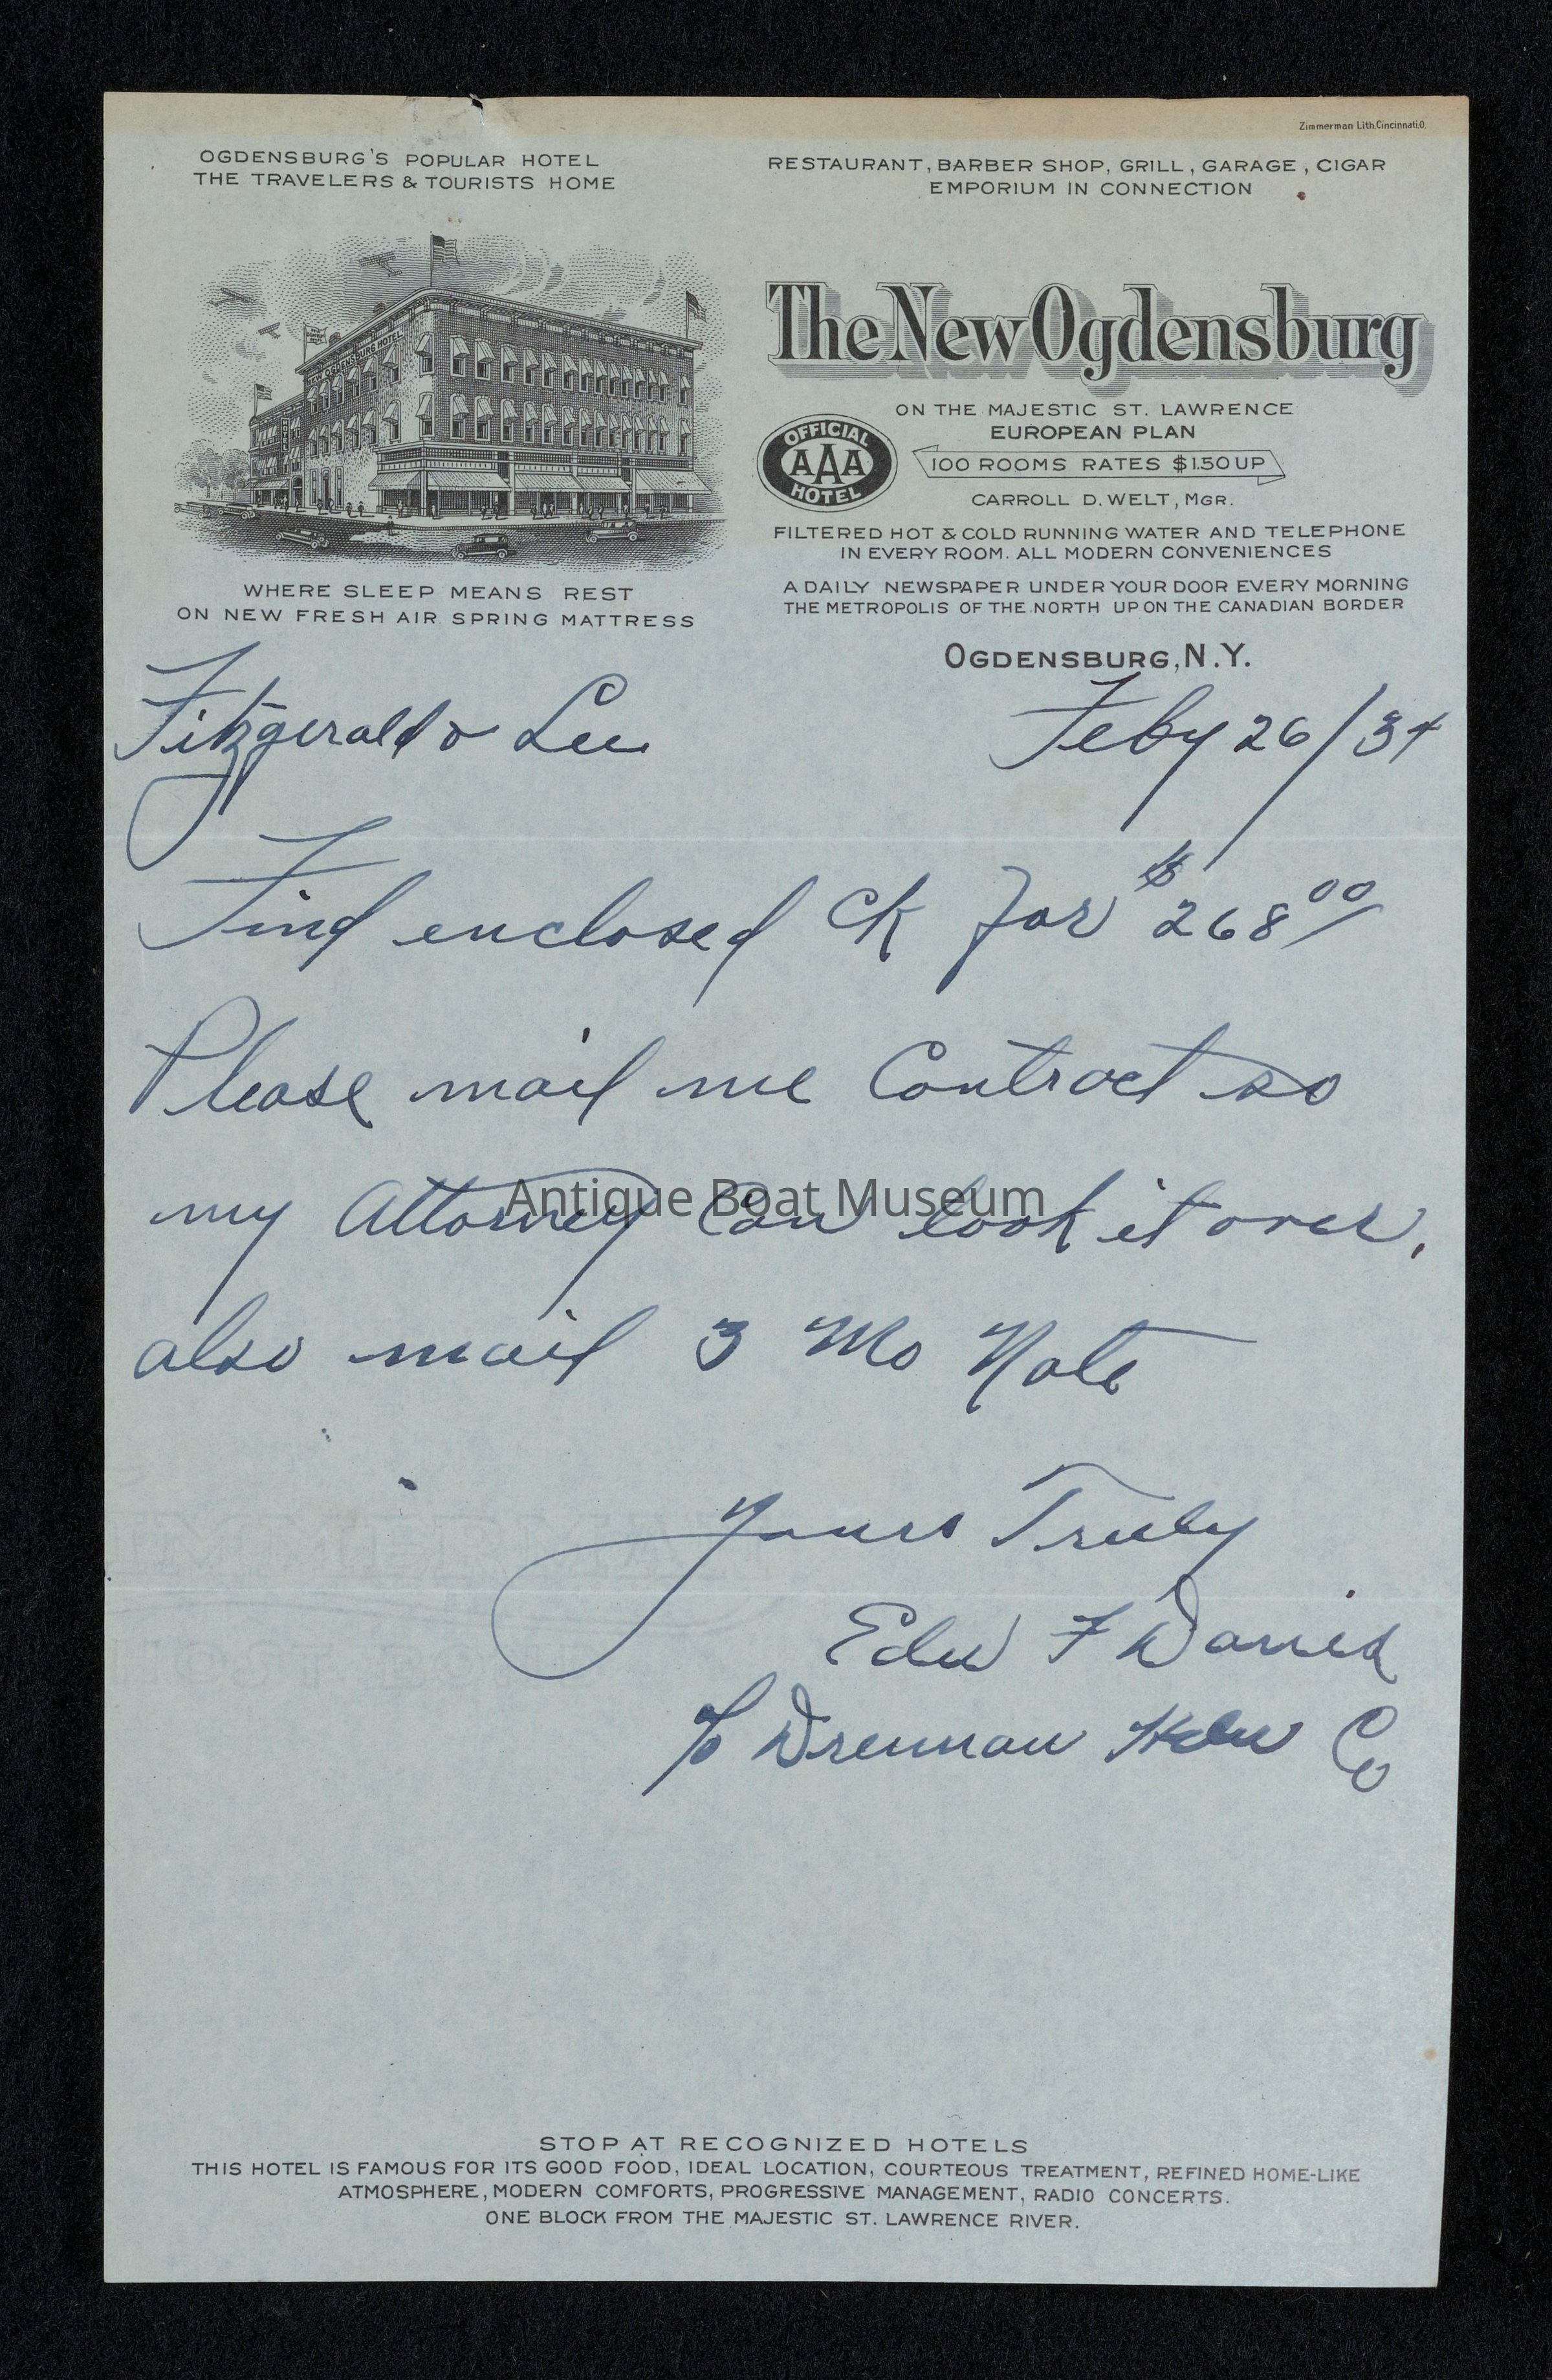 Zimmerman Lith.Cincinnati.O.
OGDENSBURG'S POPULAR HOTEL
THE TRAVELERS & TOURISTS HOME
RESTAURANT, BARBER SHOP, GRILL, GARAGE, CIGAR
EMPORIUM IN CONNECTION
NEW OGDENSBURG HOTEL
The New Ogdensburg
ON THE MAJESTIC ST. LAWRENCE
EUROPEAN PLAN
OFFICIAL
AAA
HOTEL
100 ROOMS RATES $1.50 UP
CARROLL D. WELT, MGR.
FILTERED HOT & COLD RUNNING WATER AND TELEPHONE
IN EVERY ROOM. ALL MODERN CONVENIENCES
A DAILY NEWSPAPER UNDER YOUR DOOR EVERY MORNING
THE METROPOLIS OF THE NORTH UP ON THE CANADIAN BORDER
WHERE SLEEP MEANS REST
ON NEW FRESH AIR SPRING MATTRESS
OGDENSBURG, N.Y.
Fitzgerald & Lee
Feby 26/34
Find enclosed Ck for $268 00
Please mail me Contract so
my Attorney Can look it over.
also mail 3 Mo Note
Yours Truly
Edw F
c/o Drennan Co
Antique Boat Museum
STOP AT RECOGNIZED HOTELS
THIS HOTEL IS FAMOUS FOR ITS GOOD FOOD, IDEAL LOCATION, COURTEOUS TREATMENT, REFINED HOME-LIKE
ATMOSPHERE, MODERN COMFORTS, PROGRESSIVE MANAGEMENT, RADIO CONCERTS.
ONE BLOCK FROM THE MAJESTIC ST. LAWRENCE RIVER.